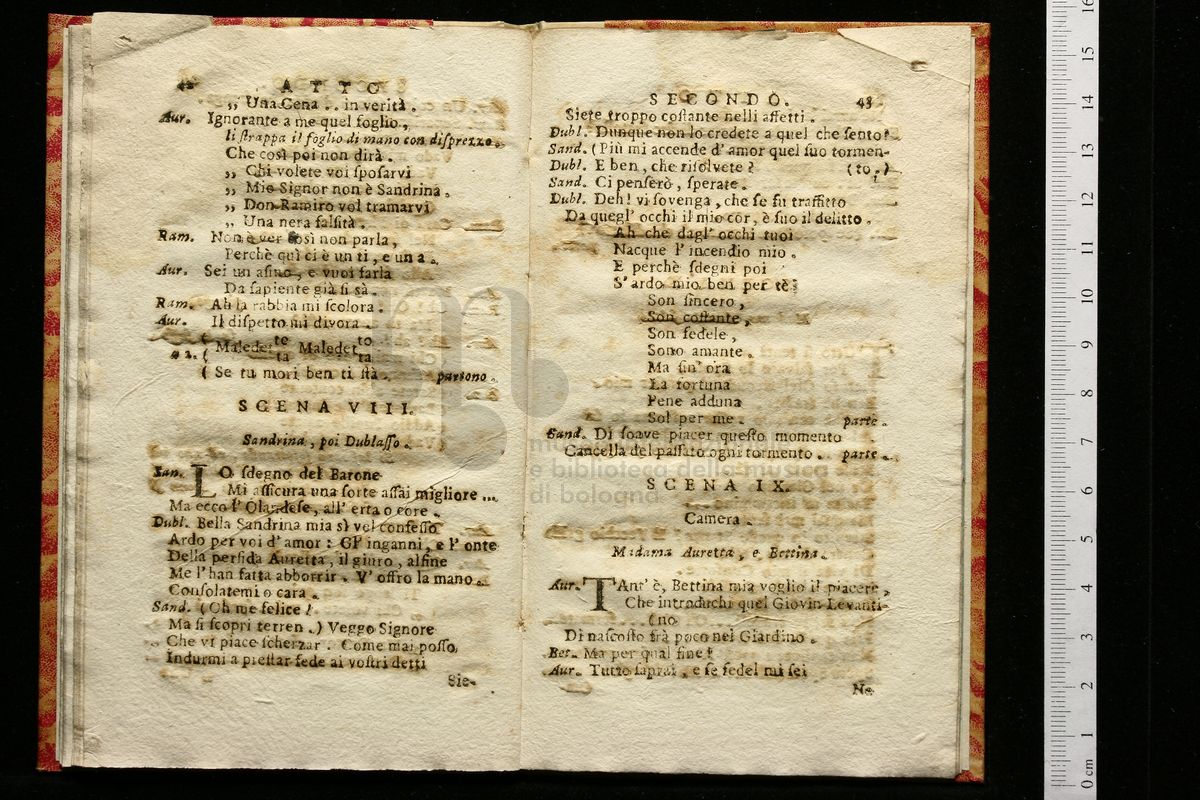 42 ATTO
„ Una Cena .. in verità .
Aur. Ignorante a me quel foglio ,
li ſtrappa il foglio di mano con diſprezzo .
Che così poi non dirà .
„ Chi volete voi ſpoſarvi
„ Mio Signor non è Sandrina .
„ Don Ramiro vol tramarvi
„ Una nera falſità .
Ram. Non è ver così non parla ,
Perchè quì ci è un ti , e una .
Aur. Sei un aſino , e vuoi farla
Da ſapiente già ſi sà .
Ram. Ah la rabbia mi ſcolora .
Aur. Il diſpetto mi divora .
a 2. ( Maledet te ta Maledet to ta
( Se tu mori ben ti ſtà . partono .
SCENA VIII.
Sandrina , poi Dublaſſo .
San. LO ſdegno del Barone
Mi aſſicura una ſorte aſſai migliore ...
Ma ecco l' Olandeſe , all' erta o core .
Dubl. Bella Sandrina mia sì vel confeſſo
Ardo per voi d' amor : Gl' inganni , e l' onte
Della perfida Auretta , il giuro , alfine
Me l' han fatta abborrir . V' offro la mano .
Conſolatemi o cara .
Sand. (Oh me felice !
Ma ſi ſcopri terren .) Veggo Signore
Che vi piace ſcherzar . Come mai poſſo
Indurmi a preſtar fede ai voſtri detti
Sie-
SECONDO. 43
Siete troppo coſtante nelli affetti .
Dubl. Dunque non lo credete a quel che ſento ?
Sand. (Più mi accende d' amor quel ſuo tormen-
Dubl. E ben , che riſolvete ? (to .)
Sand. Ci penſerò , ſperate .
Dubl. Deh ! vi ſovenga , che ſe fu traffitto
Da quegl' occhi il mio cor , è ſuo il delitto .
Ah che dagl' occhi tuoi
Nacque l' incendio mio .
E perchè ſdegni poi
S' ardo mio ben per tè ?
Son ſincero ,
Son coſtante ,
Son fedele ,
Sono amante .
Ma ſin' ora
La fortuna
Pene adduna
Sol per me . parte .
Sand. Di ſoave piacer queſto momento
Cancella del paſſato ogni tormento . parte .
SCENA IX.
Camera .
Madama Auretta , e Bettina .
Aur. TAnt' è , Bettina mia voglio il piacere ,
Che introduchi quel Giovin Levanti-
(no
Di naſcoſto frà poco nei Giardino .
Bet. Ma per qual fine ?
Aur. Tutto ſaprai , e ſe fedel mi ſei
Ne
museo
e biblioteca della musica
di bologna
0 cm 1 2 3 4 5 6 7 8 9 10 11 12 13 14 15 16